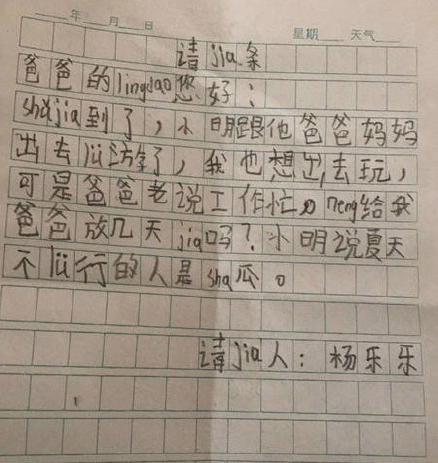 年 月 日 星期 天气
请jia条
爸爸的lingdao您好：
shǔjia到了，小明跟他爸爸妈妈
出去lǚ了，我也想出去玩，
可是爸爸老说工作忙，neng给我
爸爸放几天jia吗？小明说夏天
不lǚ行的人是sha瓜。
请jia人：杨乐乐